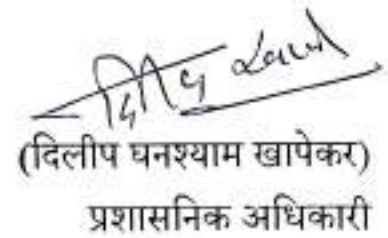 (दिलीप घनश्याम खापेकर)
प्रशासनिक अधिकारी